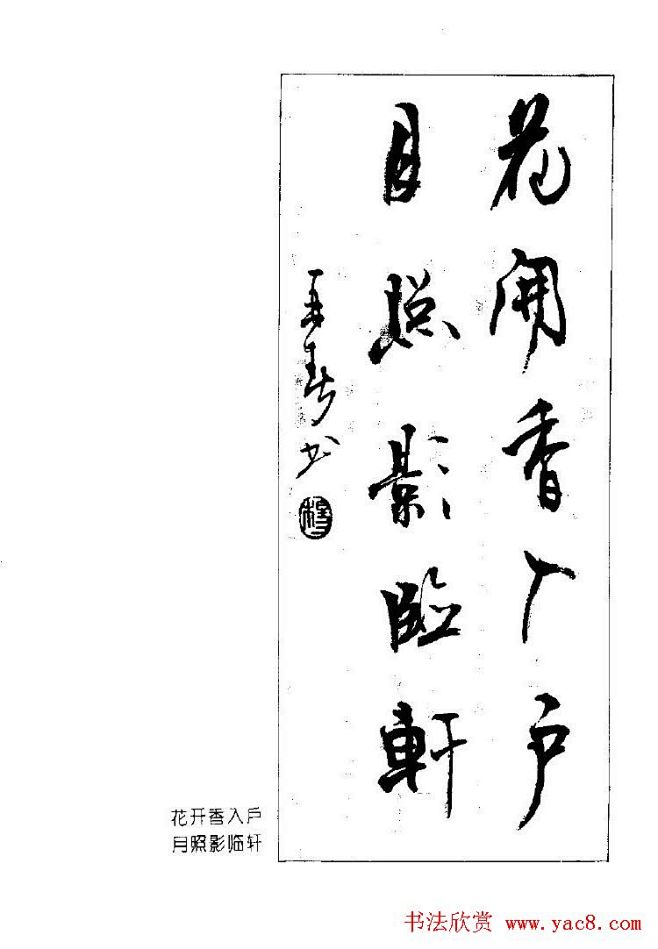 花開香入户
月照影臨軒
花开香入户
月照影临轩
书法欣赏 www.yac8.com